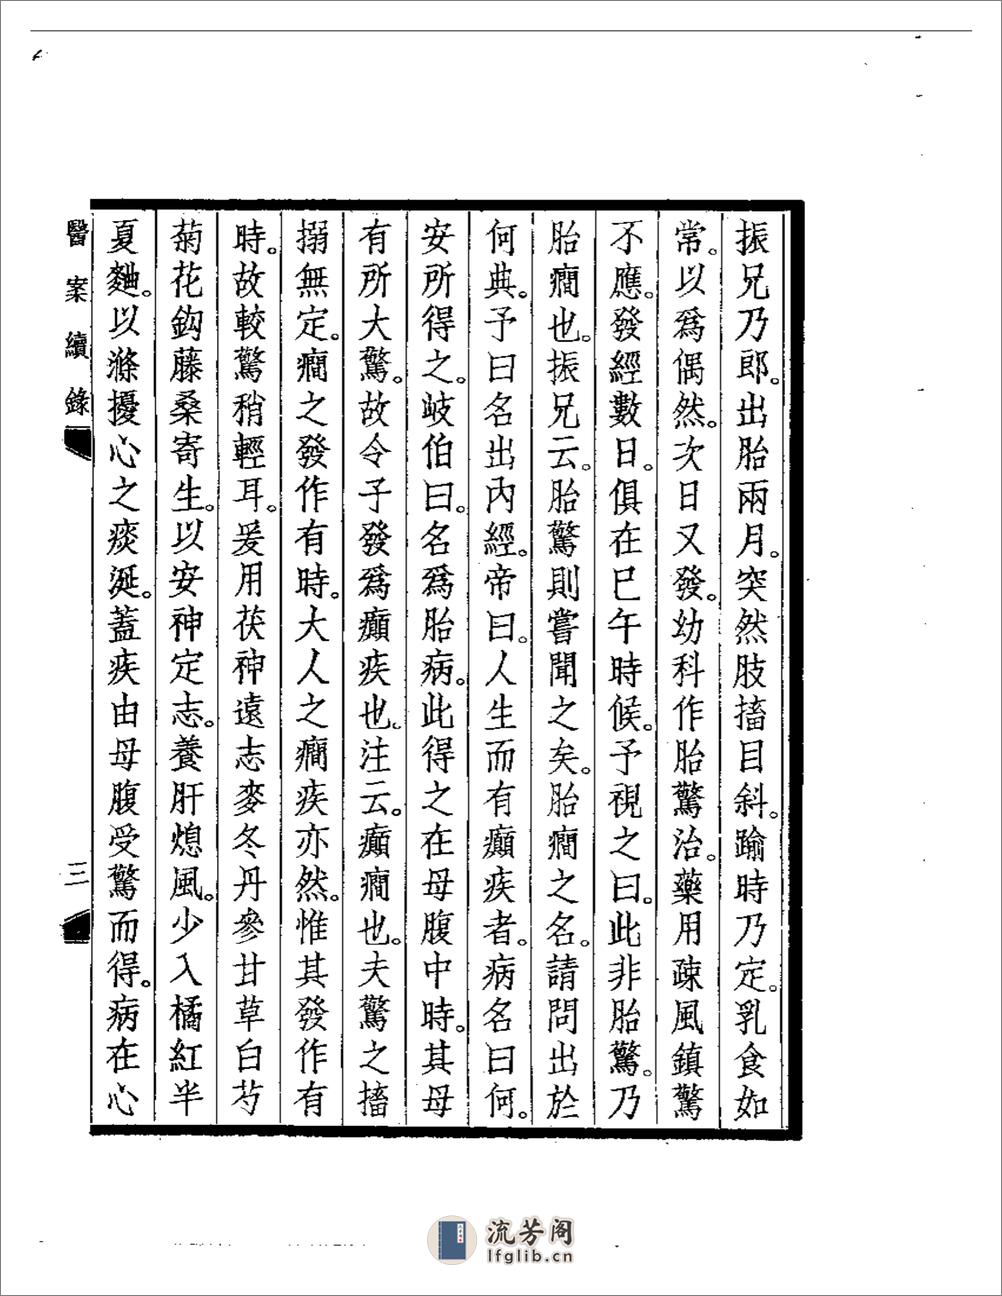 振兄乃郎。出胎兩月。突然肢搐目斜。踰時乃定。乳食如
常。以爲偶然。次日又發。幼科作胎驚治。藥用疎風鎮驚
不應。發經數日。俱在巳午時候。予視之曰。此非胎驚。乃
胎癎也。振兄云。胎驚則嘗聞之矣。胎癎之名。請問出於
何典。予曰名出內經。帝曰。人生而有癲疾者。病名曰何。
安所得之。岐伯曰。名爲胎病。此得之在母腹中時。其母
有所大驚。故令子發爲癲疾也。注云。癲癎也。夫驚之搐
搦無定。癎之發作有時。大人之癎疾亦然。惟其發作有
時。故較驚稍輕耳。爰用茯神遠志麥冬丹參甘草白芍
菊花鈎藤桑寄生。以安神定志。養肝熄風。少入橘紅半
夏麯。以滌擾心之痰涎。蓋疾由母腹受驚而得。病在心
醫案續錄
三
流芳阁
lfglib.cn